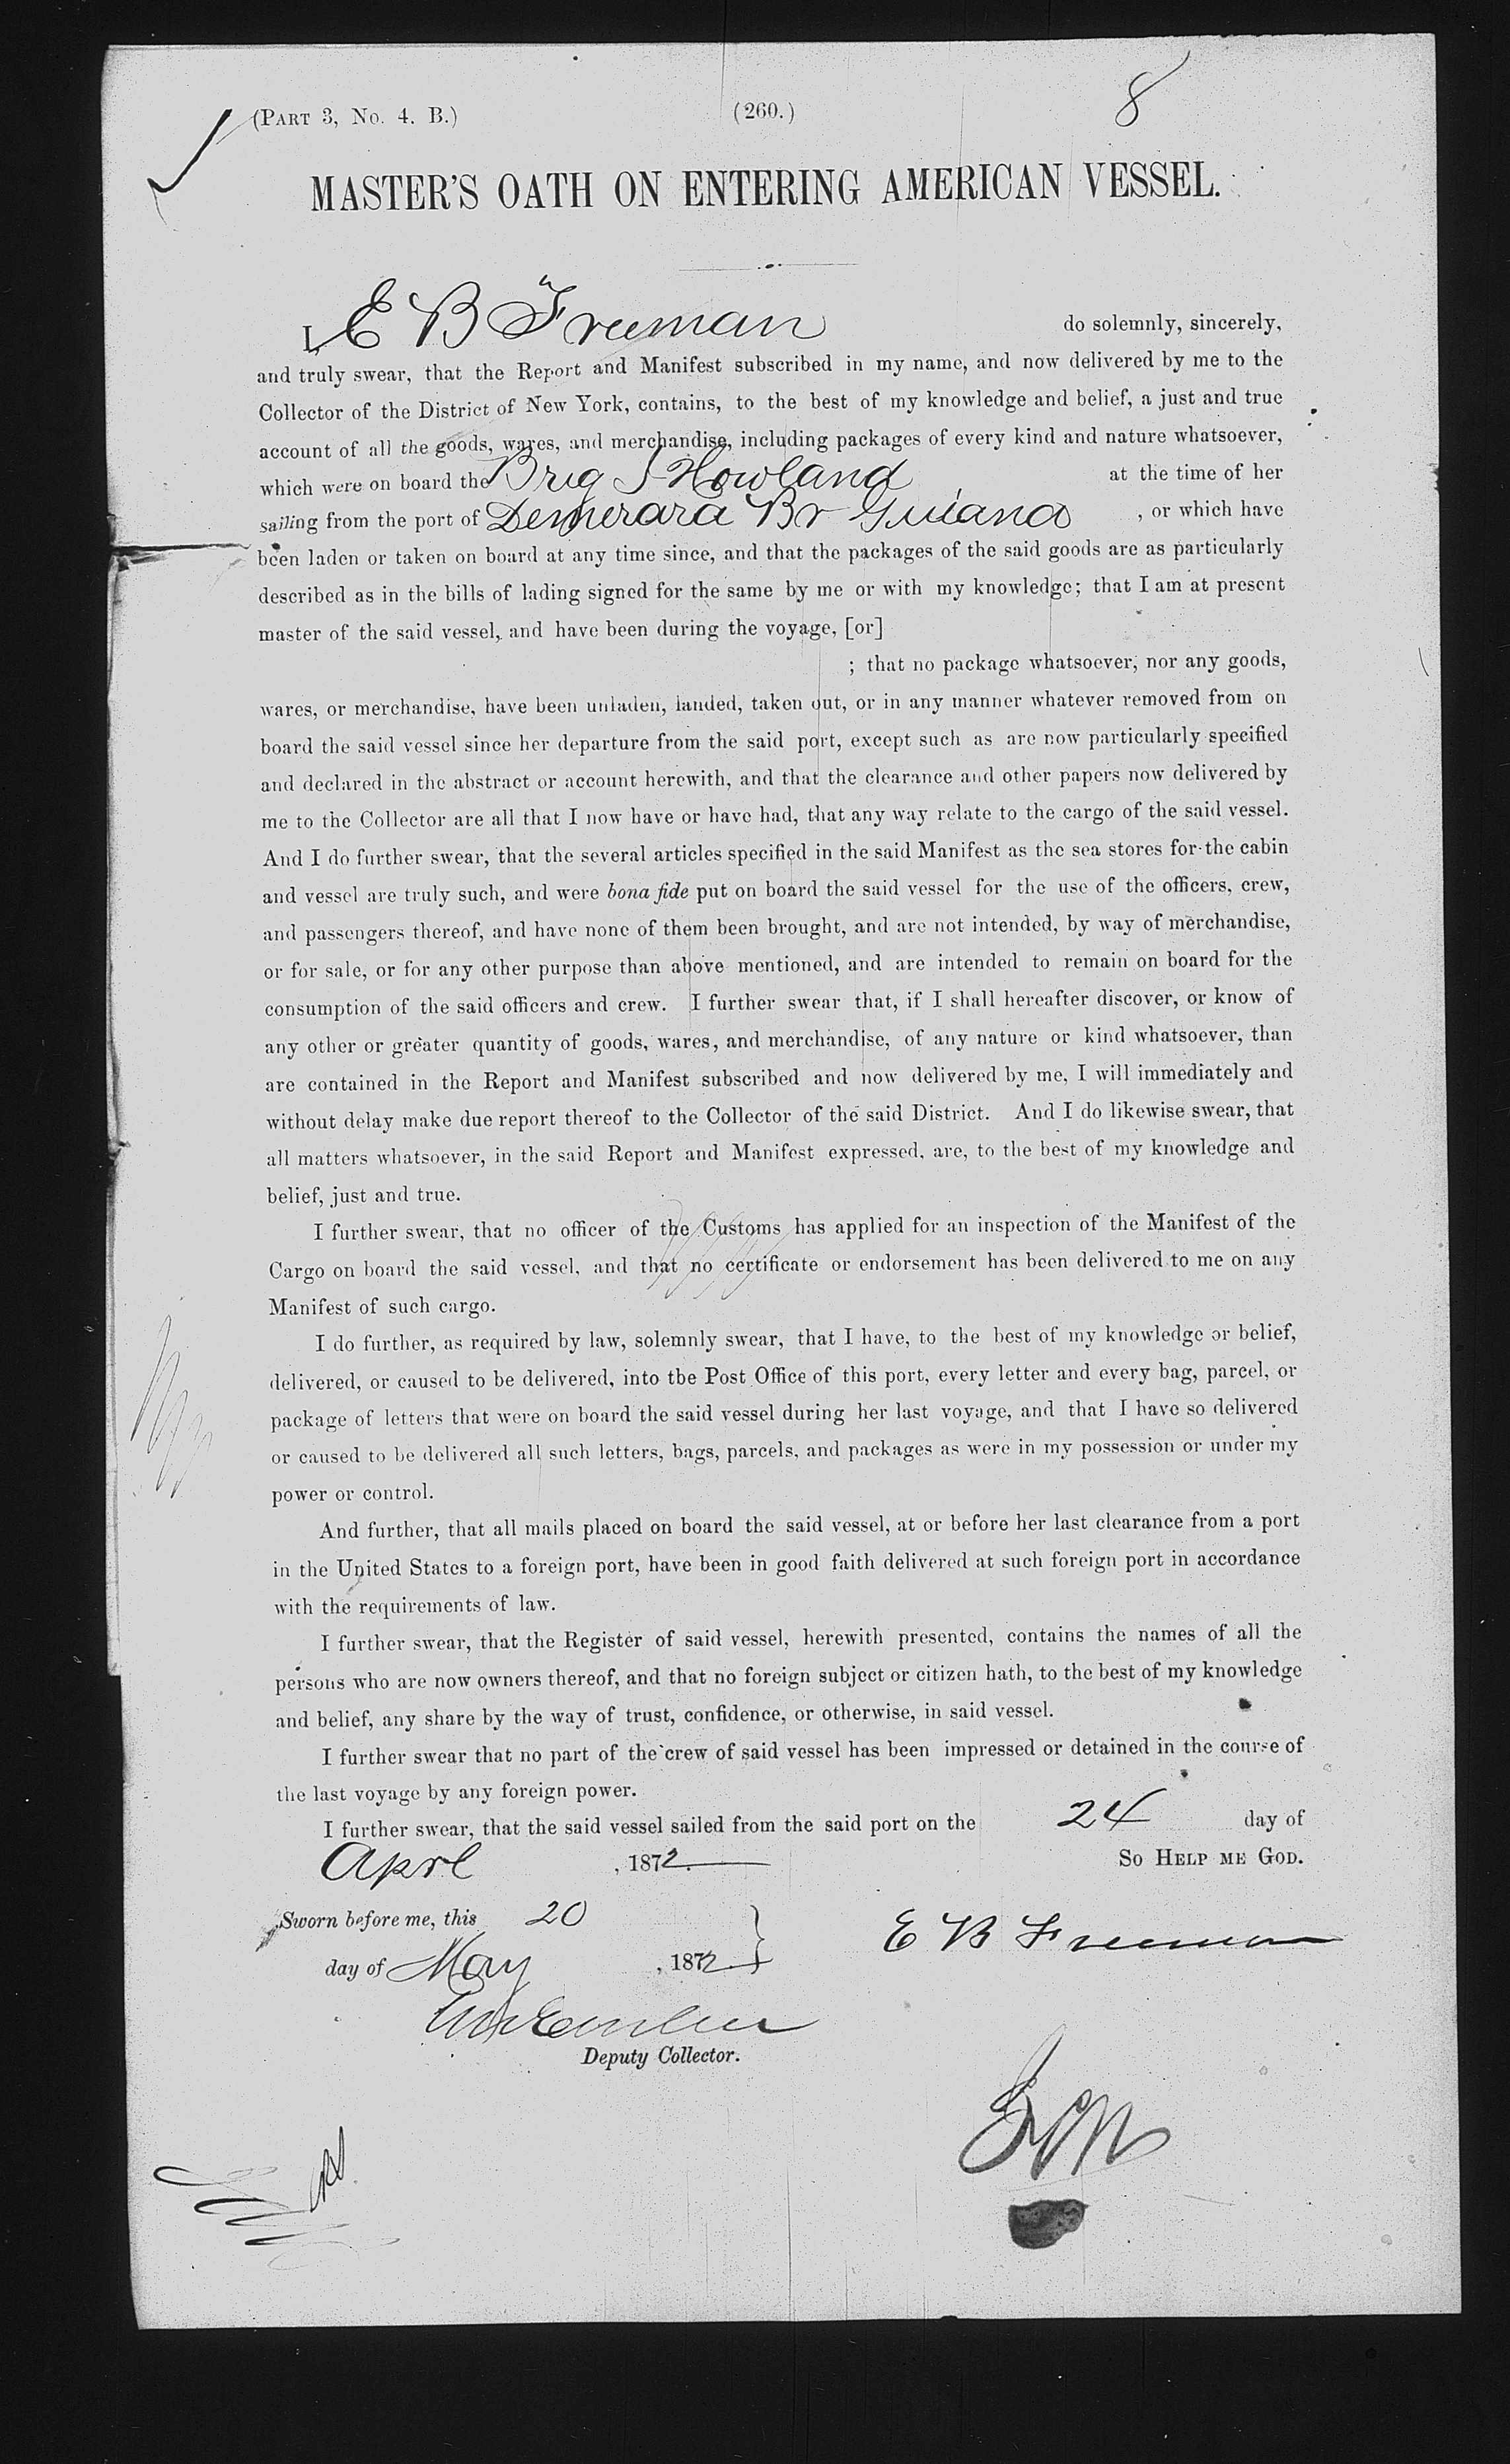 (PART 3, No. 4. B.)
(260.)
8
MASTER'S OATH ON ENTERING AMERICAN VESSEL.
I, E B Freeman do solemnly, sincerely,
and truly swear, that the Report and Manifest subscribed in my name, and now delivered by me to the
Collector of the District of New York, contains, to the best of my knowledge and belief, a just and true
account of all the goods, wares, and merchandise, including packages of every kind and nature whatsoever,
which were on board the Brig J Howland at the time of her
sailing from the port of Demerara Br Guiana, or which have
been laden or taken on board at any time since, and that the packages of the said goods are as particularly
described as in the bills of lading signed for the same by me or with my knowledge; that I am at present
master of the said vessel, and have been during the voyage, [or]
; that no package whatsoever, nor any goods,
wares, or merchandise, have been unladen, landed, taken out, or in any manner whatever removed from on
board the said vessel since her departure from the said port, except such as are now particularly specified
and declared in the abstract or account herewith, and that the clearance and other papers now delivered by
me to the Collector are all that I now have or have had, that any way relate to the cargo of the said vessel.
And I do further swear, that the several articles specified in the said Manifest as the sea stores for the cabin
and vessel are truly such, and were bona fide put on board the said vessel for the use of the officers, crew,
and passengers thereof, and have none of them been brought, and are not intended, by way of merchandise,
or for sale, or for any other purpose than above mentioned, and are intended to remain on board for the
consumption of the said officers and crew. I further swear that, if I shall hereafter discover, or know of
any other or greater quantity of goods, wares, and merchandise, of any nature or kind whatsoever, than
are contained in the Report and Manifest subscribed and now delivered by me, I will immediately and
without delay make due report thereof to the Collector of the said District. And I do likewise swear, that
all matters whatsoever, in the said Report and Manifest expressed, are, to the best of my knowledge and
belief, just and true.
I further swear, that no officer of the Customs has applied for an inspection of the Manifest of the
Cargo on board the said vessel, and that no certificate or endorsement has been delivered to me on any
Manifest of such cargo.
I do further, as required by law, solemnly swear, that I have, to the best of my knowledge or belief,
delivered, or caused to be delivered, into the Post Office of this port, every letter and every bag, parcel, or
package of letters that were on board the said vessel during her last voyage, and that I have so delivered
or caused to be delivered all such letters, bags, parcels, and packages as were in my possession or under my
power or control.
And further, that all mails placed on board the said vessel, at or before her last clearance from a port
in the United States to a foreign port, have been in good faith delivered at such foreign port in accordance
with the requirements of law.
I further swear, that the Register of said vessel, herewith presented, contains the names of all the
persons who are now owners thereof, and that no foreign subject or citizen hath, to the best of my knowledge
and belief, any share by the way of trust, confidence, or otherwise, in said vessel.
I further swear that no part of the crew of said vessel has been impressed or detained in the course of
the last voyage by any foreign power.
I further swear, that the said vessel sailed from the said port on the 24 day of
Aprl, 1872. So HELP ME GOD.
Sworn before me, this 20
E B Freeman
day of May, 1872
Deputy Collector.